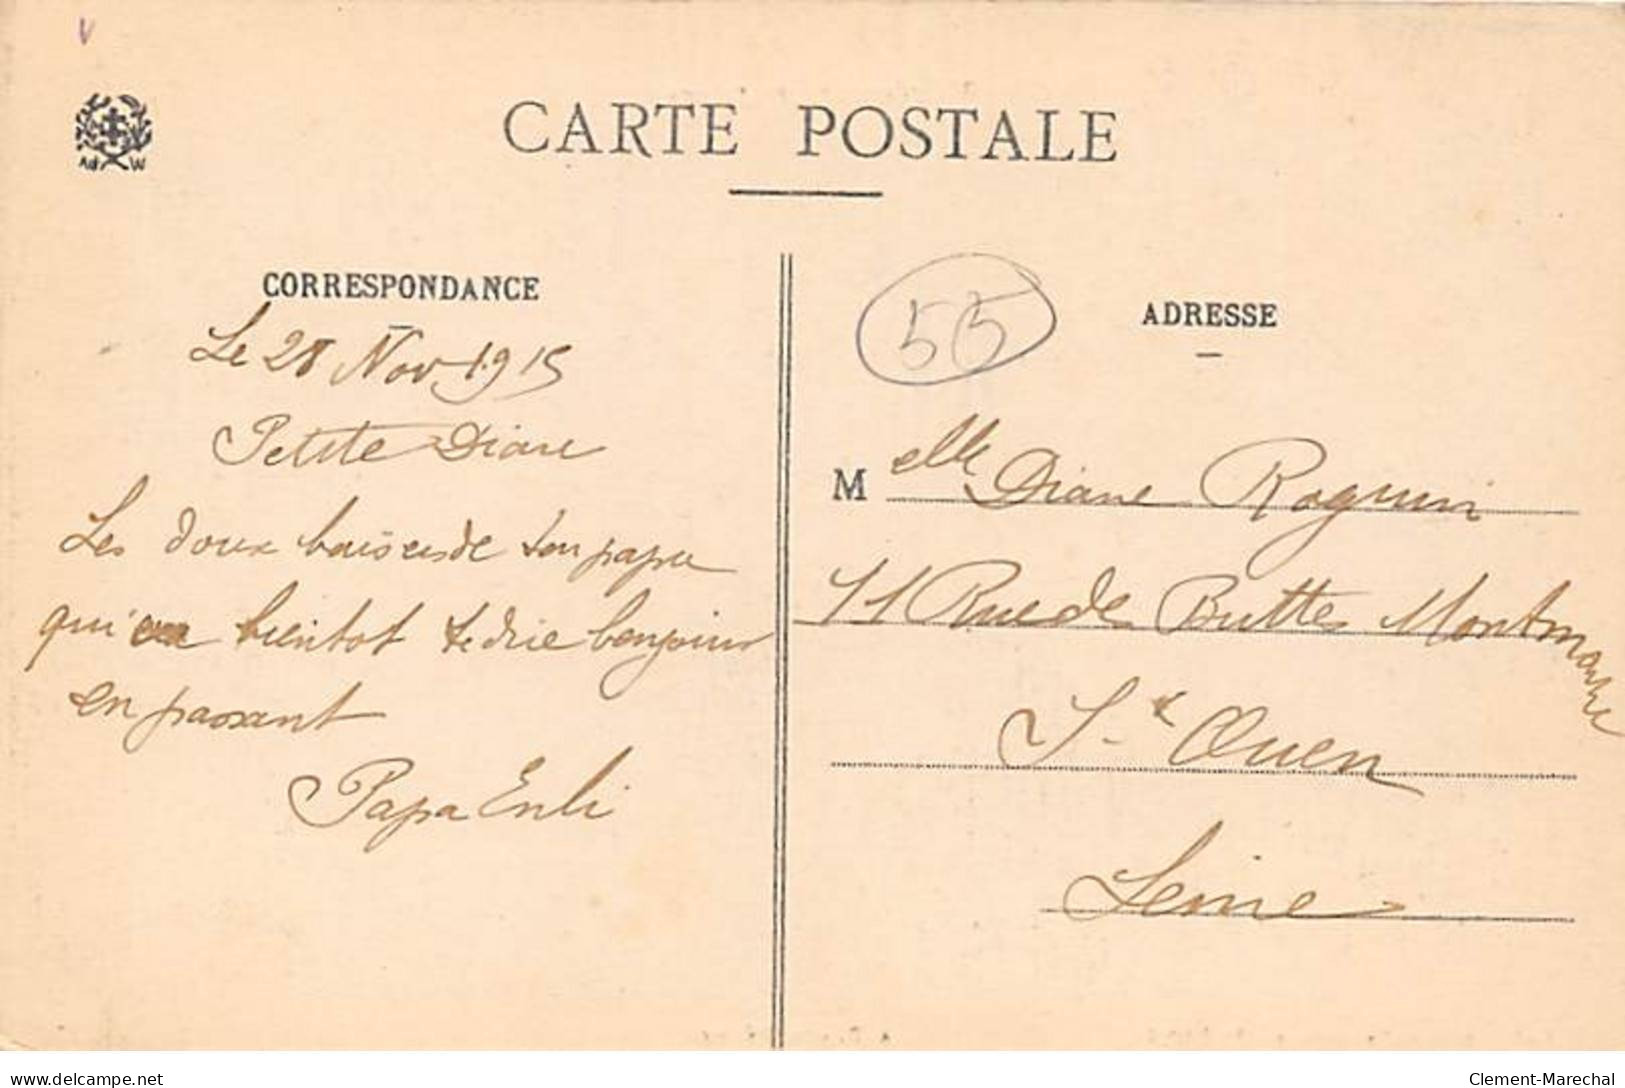 CARTE POSTALE
CORRESPONDANCE
Le 28 Nov 1915
Petite Diane
Les doux baisers de ton papa
qui bientot te dire bonjour
en passant
Papa Enli
55
ADRESSE
Melle Diane Roguin
11 Rue des Buttes Montmartre
St Ouen
Seine
Ad W
delcampe.net
Clement-Marechal